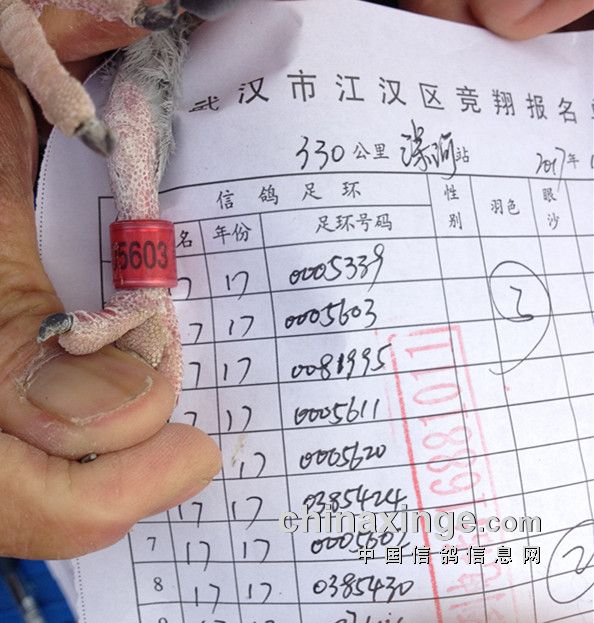 武汉市江汉区竞翔报名单
330公里 漯河站 2017年
信鸽足环 性别 羽色 眼沙
名 年份 足环号码
5603
17 0005339
17 0005603
17 0081995
17 0005611
17 0005620
17 17 0385424
7 17 17 0005607
8 17 17 0385430
3
2
16881011
chinaxinge.com
中国信鸽信息网